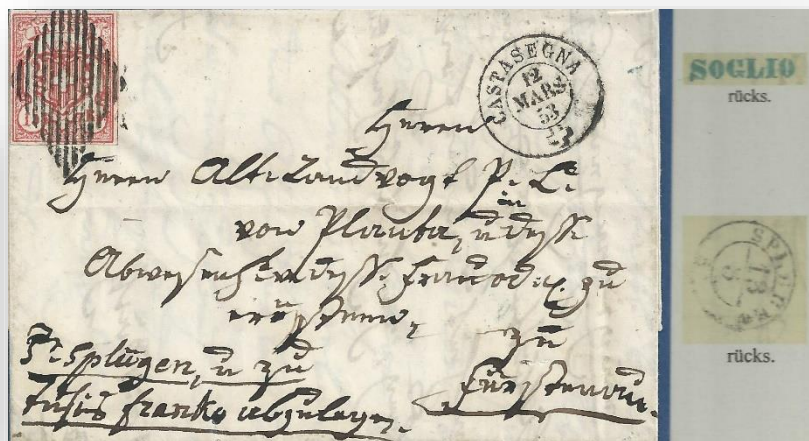 CASTASEGNA
12
MARZ
53
Herrn
Herrn Alt Landvogt P. C.
in
von Planta,
Abwesenheit zu
zu
Fürstenau.
P. Splügen, u zu
Tusis franko abzulegen.
SOGLIO
rücks.
SPLÜGEN
13
3
rücks.